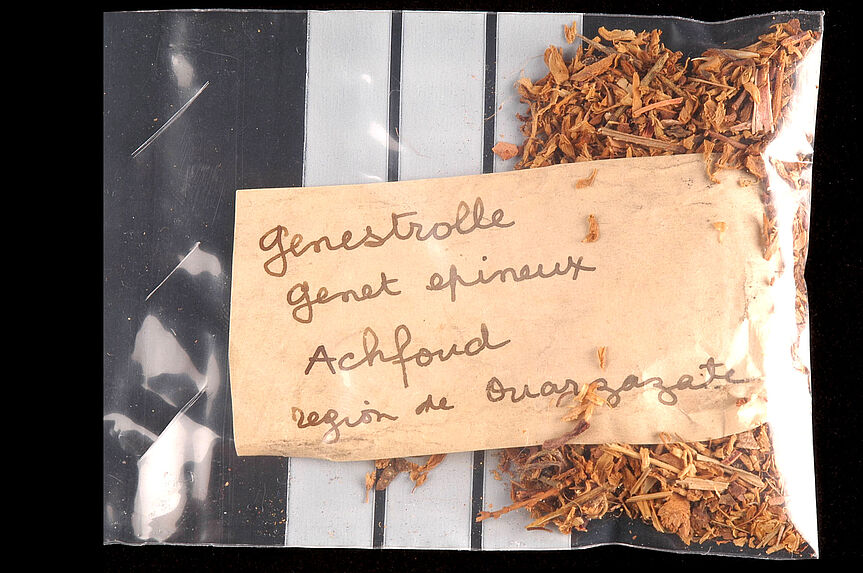 Genestrolle
Genet epineux
Achfoud
region de Ouarzazate